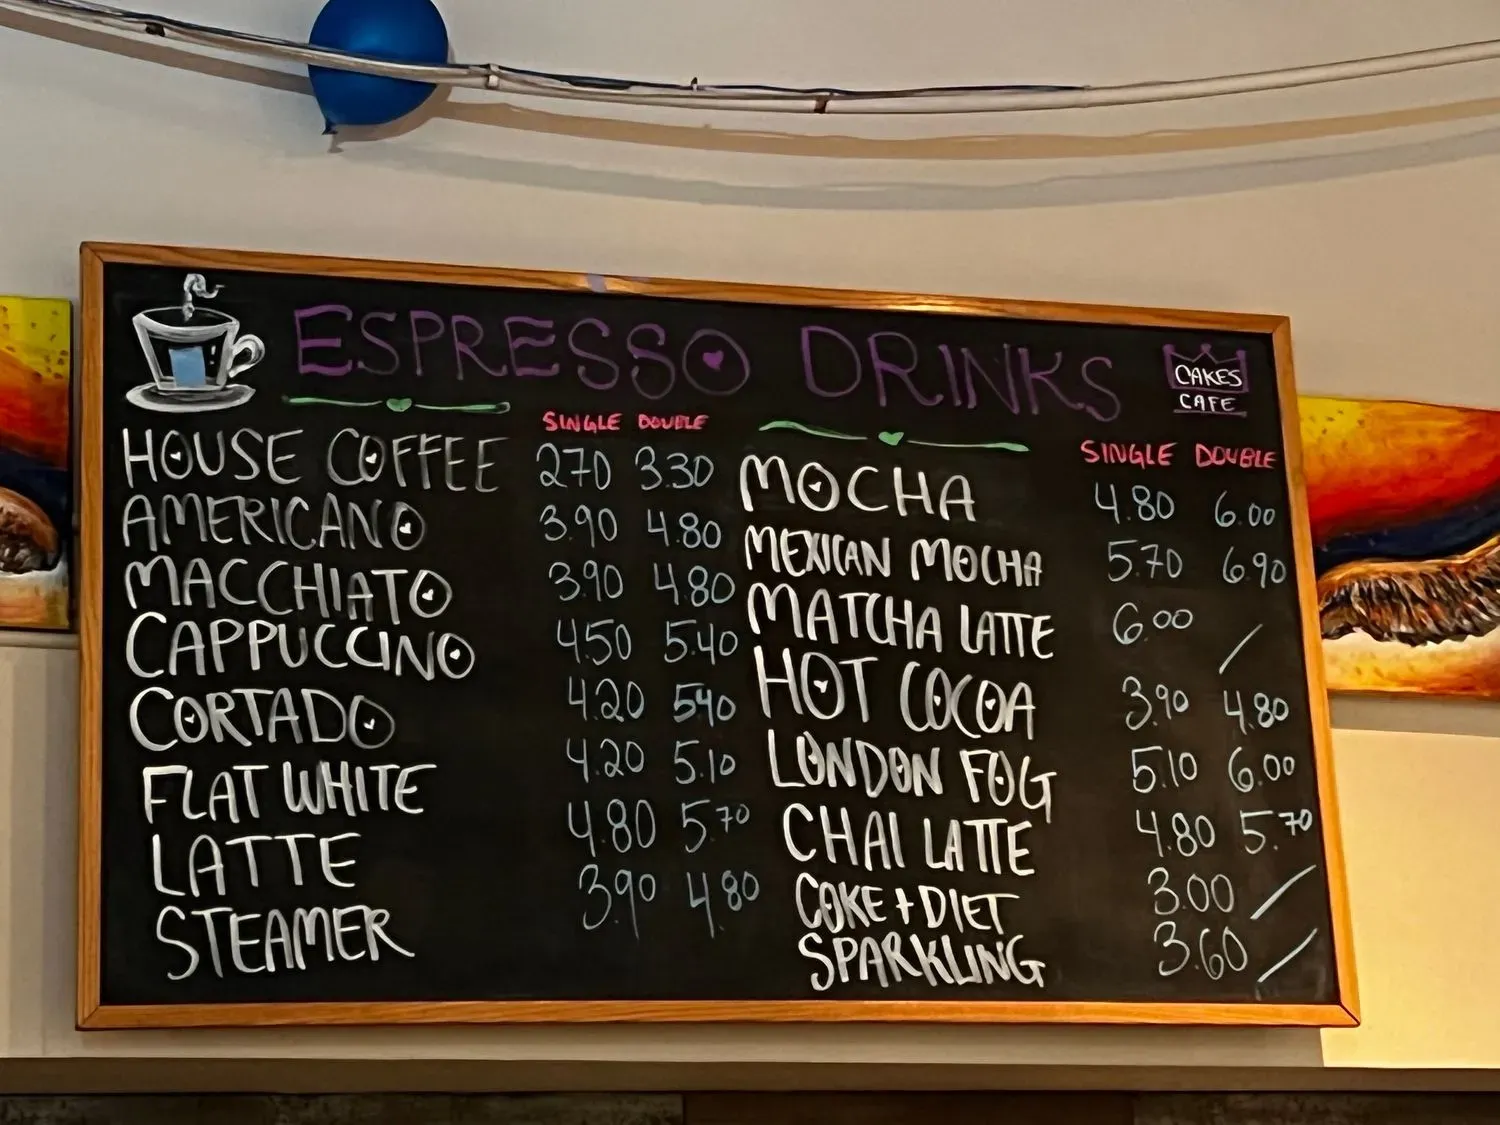 ESPRESSO DRINKS
CAKES
CAFE
SINGLE DOUBLE
HOUSE COFFEE 270 3.30
AMERICANO 3.90 4.80
MACCHIATO 3.90 4.80
CAPPUCCINO 4.50 5.40
CORTADO 4.20 540
FLAT WHITE 4.20 5.10
LATTE 4.80 5.70
STEAMER 3.90 4.80
SINGLE DOUBLE
MOCHA 4.80 6.00
MEXICAN MOCHA 5.70 6.90
MATCHA LATTE 6.00 /
HOT COCOA 3.90 4.80
LONDON FOG 5.10 6.00
CHAI LATTE 4.80 5.70
COKE + DIET 3.00 /
SPARKLING 3.60 /